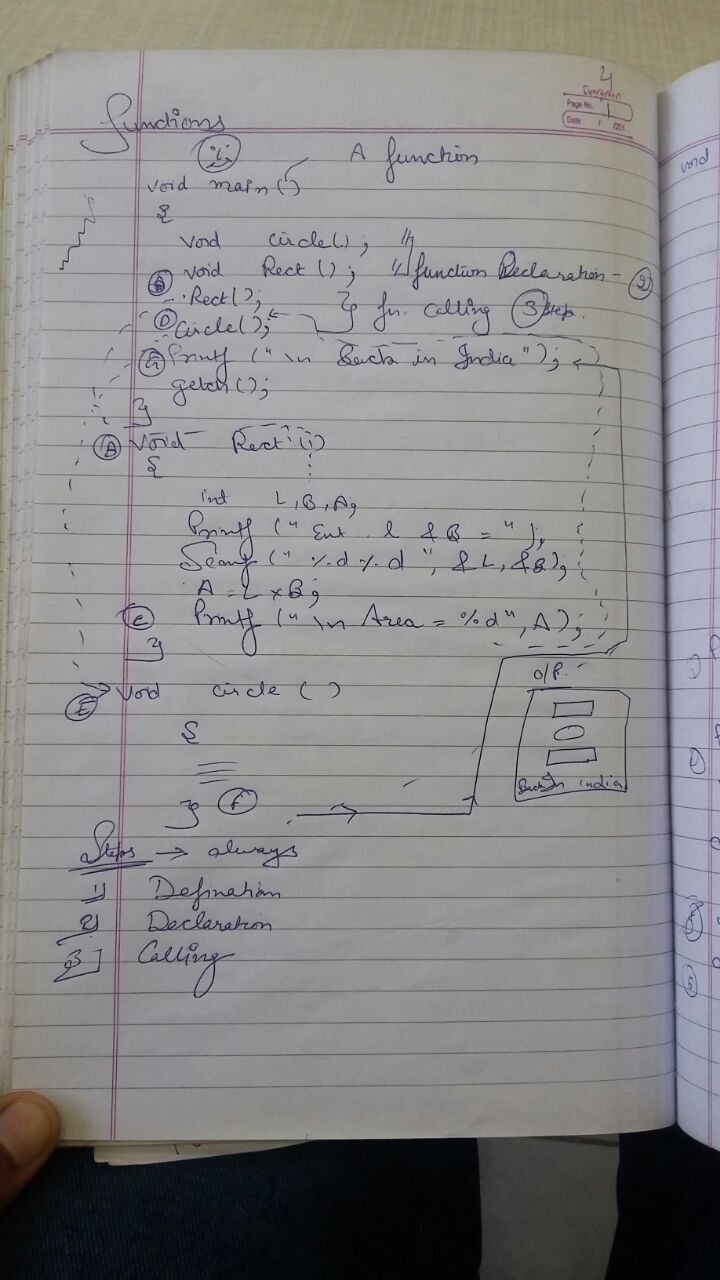 4
Evergreen
Page No. 1
Date: / /201
Functions
A function
void main()
{
void circle();
void Rect(); // function Declaration - 2
Rect();
D circle(); } fn. calling 3 step.
G Printf ("\n Back in India");
getch();
}
B void Rect()
{
int L, B, A;
Printf ("Ent. l & B = ");
Scanf ("%d %d", &L, &B);
A = L × B;
C Printf ("\n Area = %d", A);
}
O/P.
E void circle ()
{
Back in india
} F
Steps → always
1) Defination
2) Declaration
3] Calling
void